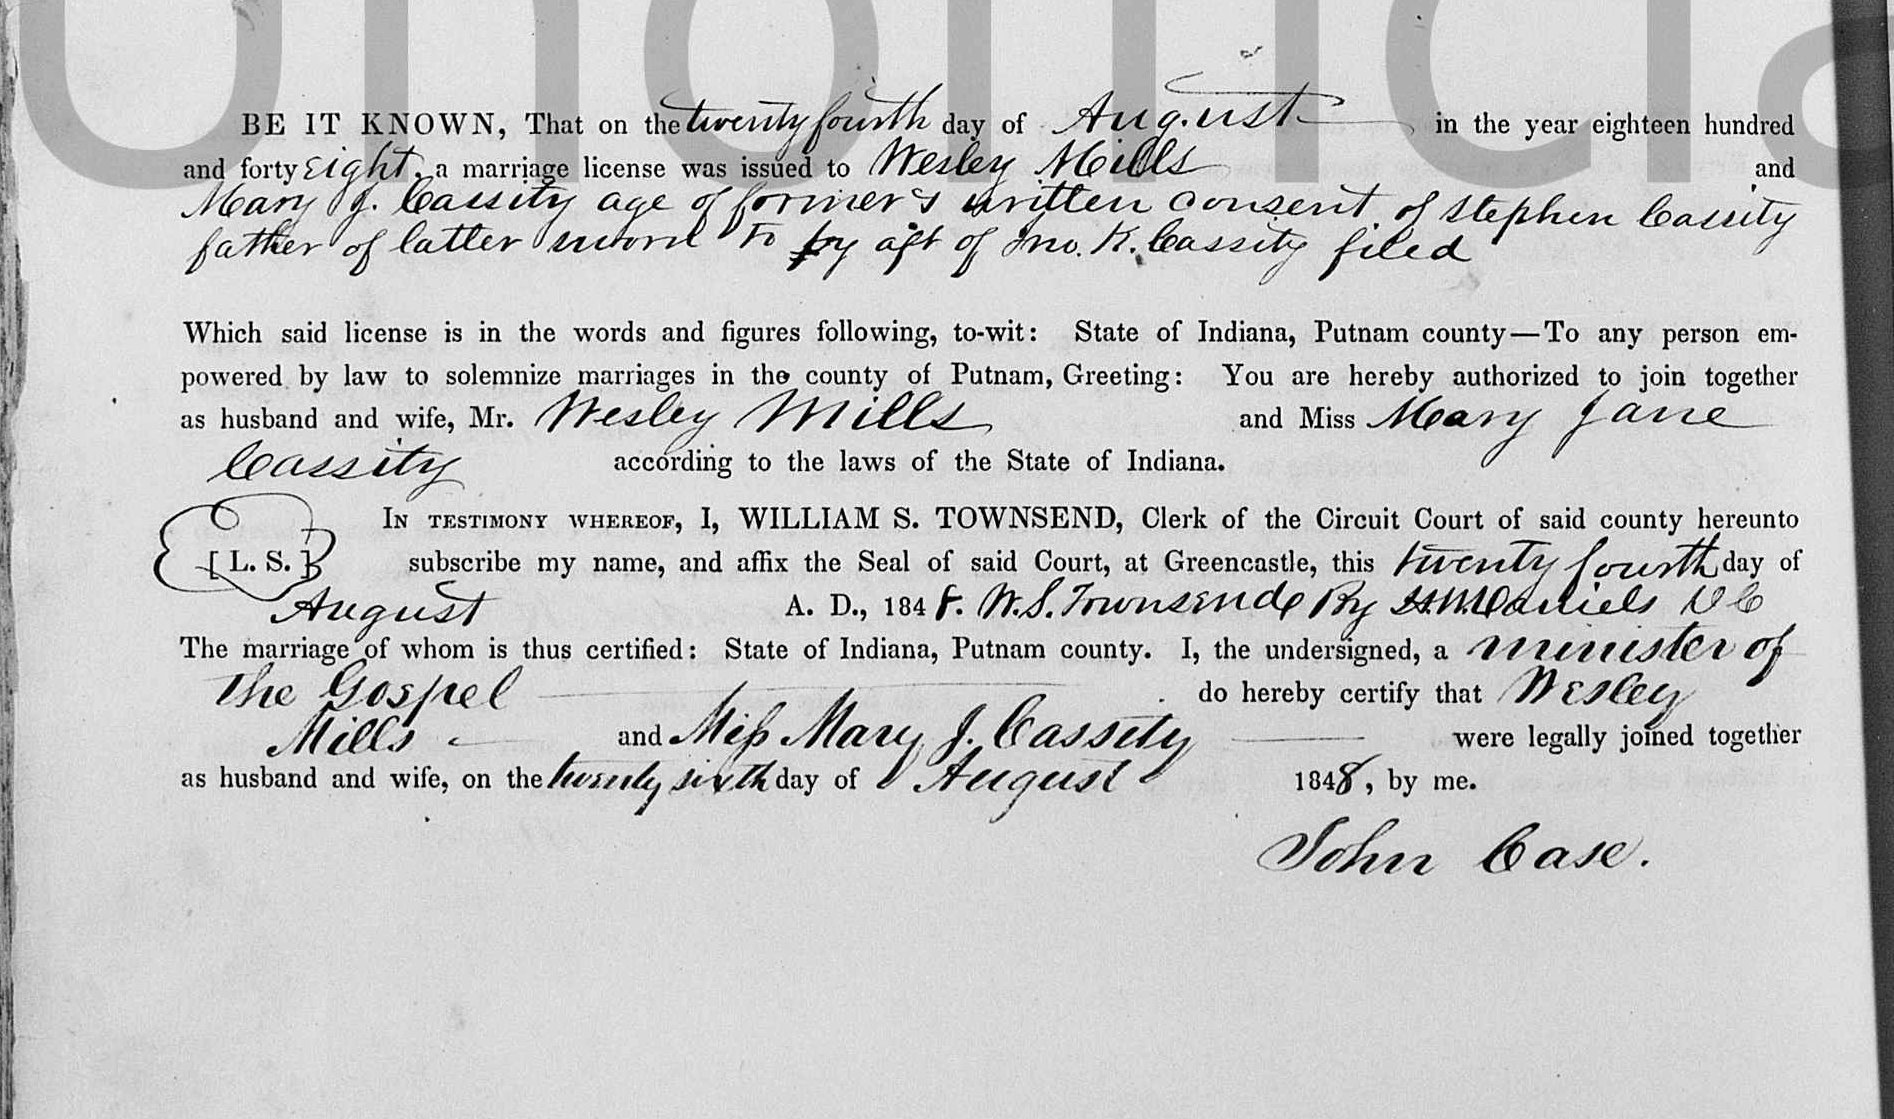 Unofficia
BE IT KNOWN, That on the twenty fourth day of August in the year eighteen hundred
and forty eight, a marriage license was issued to Wesley Mills and
Mary J. Cassity age of former & written consent of Stephen Cassity
father of latter sworn to by aft of Jno. K. Cassity filed
Which said license is in the words and figures following, to-wit: State of Indiana, Putnam county—To any person em-
powered by law to solemnize marriages in the county of Putnam, Greeting: You are hereby authorized to join together
as husband and wife, Mr. Wesley Mills and Miss Mary Jane
Cassity according to the laws of the State of Indiana.
IN TESTIMONY WHEREOF, I, WILLIAM S. TOWNSEND, Clerk of the Circuit Court of said county hereunto
[L. S.] subscribe my name, and affix the Seal of said Court, at Greencastle, this twenty fourth day of
August A. D., 1848. W. S. Townsend By Daniels D C
The marriage of whom is thus certified: State of Indiana, Putnam county. I, the undersigned, a minister of
the Gospel do hereby certify that Wesley
Mills and Miss Mary J. Cassity were legally joined together
as husband and wife, on the twenty sixth day of August 1848, by me.
John Case.